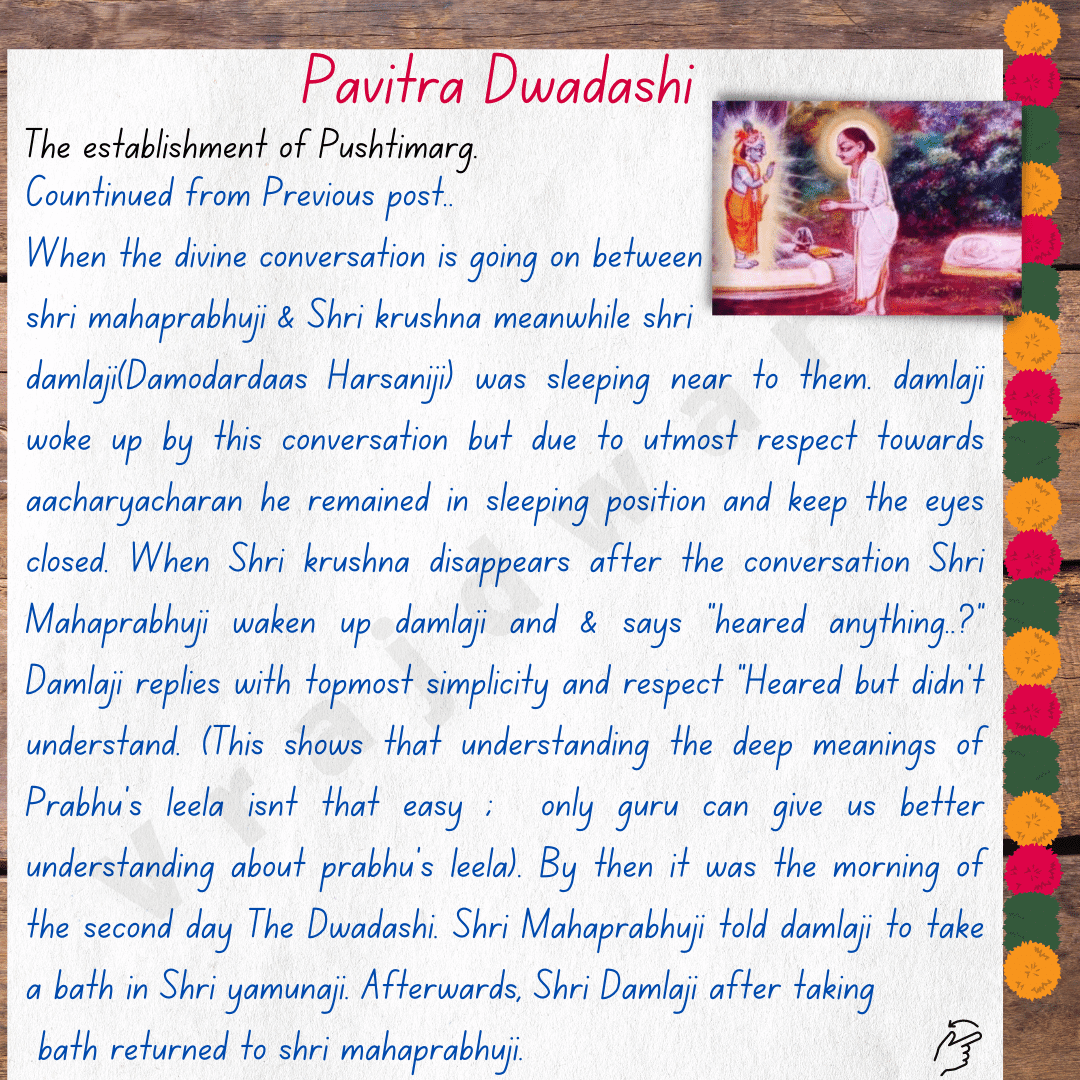 Pavitra Dwadashi
The establishment of Pushtimarg.
Countinued from Previous post..
When the divine conversation is going on between
shri mahaprabhuji & Shri krushna meanwhile shri
damlaji(Damodardaas Harsaniji) was sleeping near to them. damlaji
woke up by this conversation but due to utmost respect towards
aacharyacharan he remained in sleeping position and keep the eyes
closed. When Shri krushna disappears after the conversation Shri
Mahaprabhuji waken up damlaji and & says "heared anything..?"
Damlaji replies with topmost simplicity and respect "Heared but didn't
understand. (This shows that understanding the deep meanings of
Prabhu's leela isnt that easy ; only guru can give us better
understanding about prabhu's leela). By then it was the morning of
the second day The Dwadashi. Shri Mahaprabhuji told damlaji to take
a bath in Shri yamunaji. Afterwards, Shri Damlaji after taking
bath returned to shri mahaprabhuji.
vrajdwar